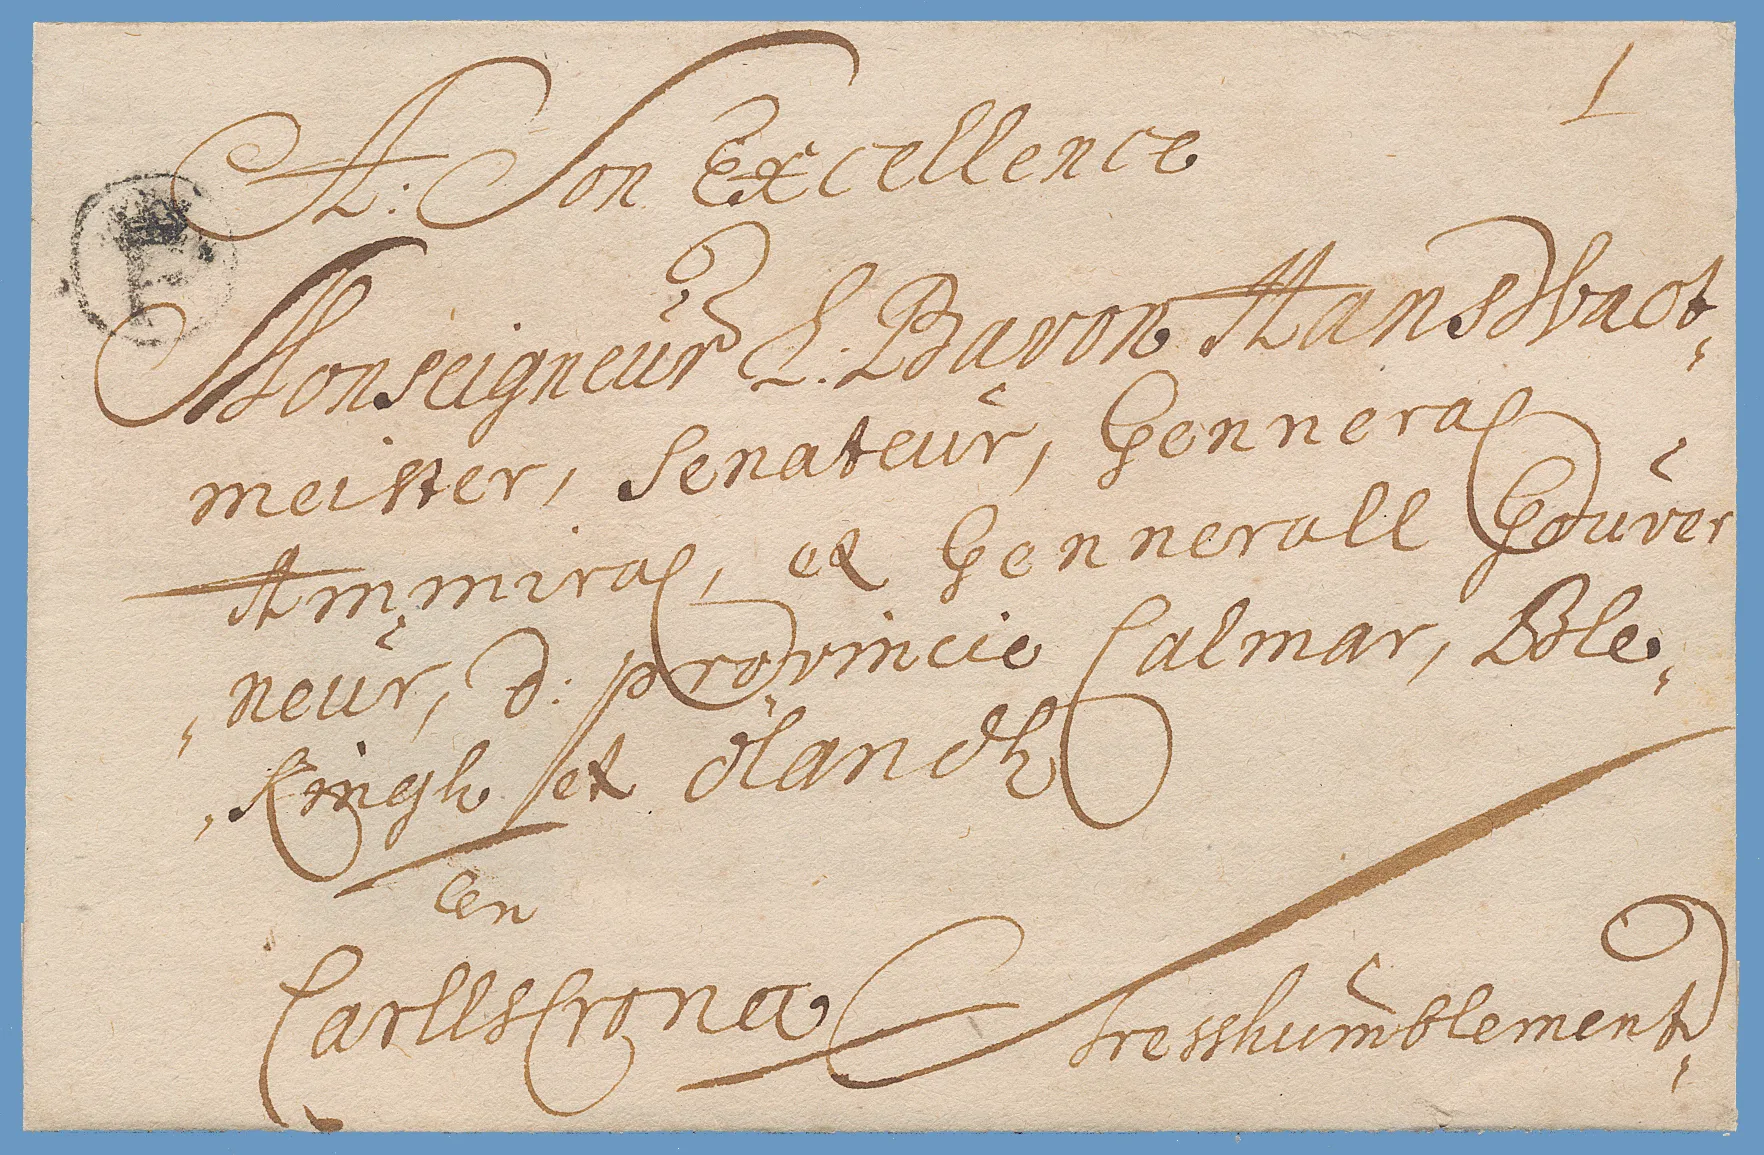 1
A: Son Excellence
F
Monseigneur L: Baron Hans Wact„
meister, Senateur, Genneral
Ammiral, et Gennerall Gouver
„neur, d: provincie Calmar, Ble„
„kingh et ölandh
en
Carllscrona
tresshumblement„